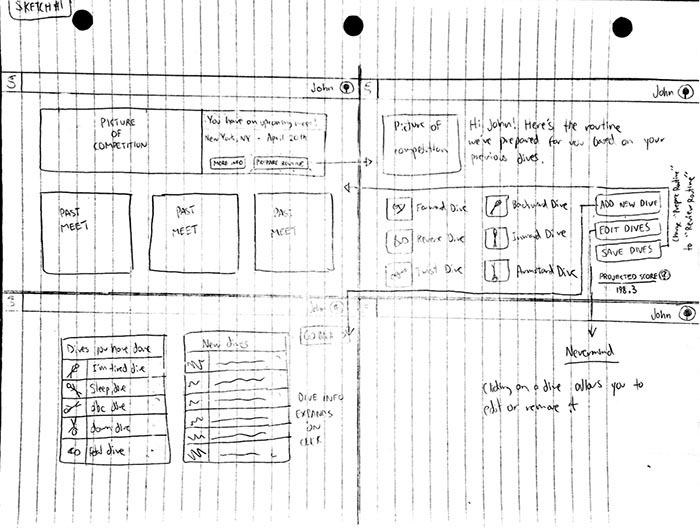 SKETCH #1
John
PICTURE
OF
COMPETITION
You have an upcoming meet!
New York, NY - April 20th
MORE INFO
PREPARE ROUTINE
PAST
MEET
PAST
MEET
PAST
MEET
John
Picture of
competition
Hi, John! Here's the routine
we've prepared for you based on your
previous dives.
Forward Dive
Backward Dive
Reverse Dive
Inward Dive
Twist Dive
Armstand Dive
ADD NEW DIVE
EDIT DIVES
SAVE DIVES
PROJECTED SCORE
198.3
Change "Prepare Routine"
to "Review Routine"
John
GO BACK
Dives you have done
I'm tired dive
Sleep dive
abc dive
down dive
New dives
DIVE INFO
EXPANDS
ON
CLICK
John
Nevermind
Clicking on a dive allows you to
edit or remove it